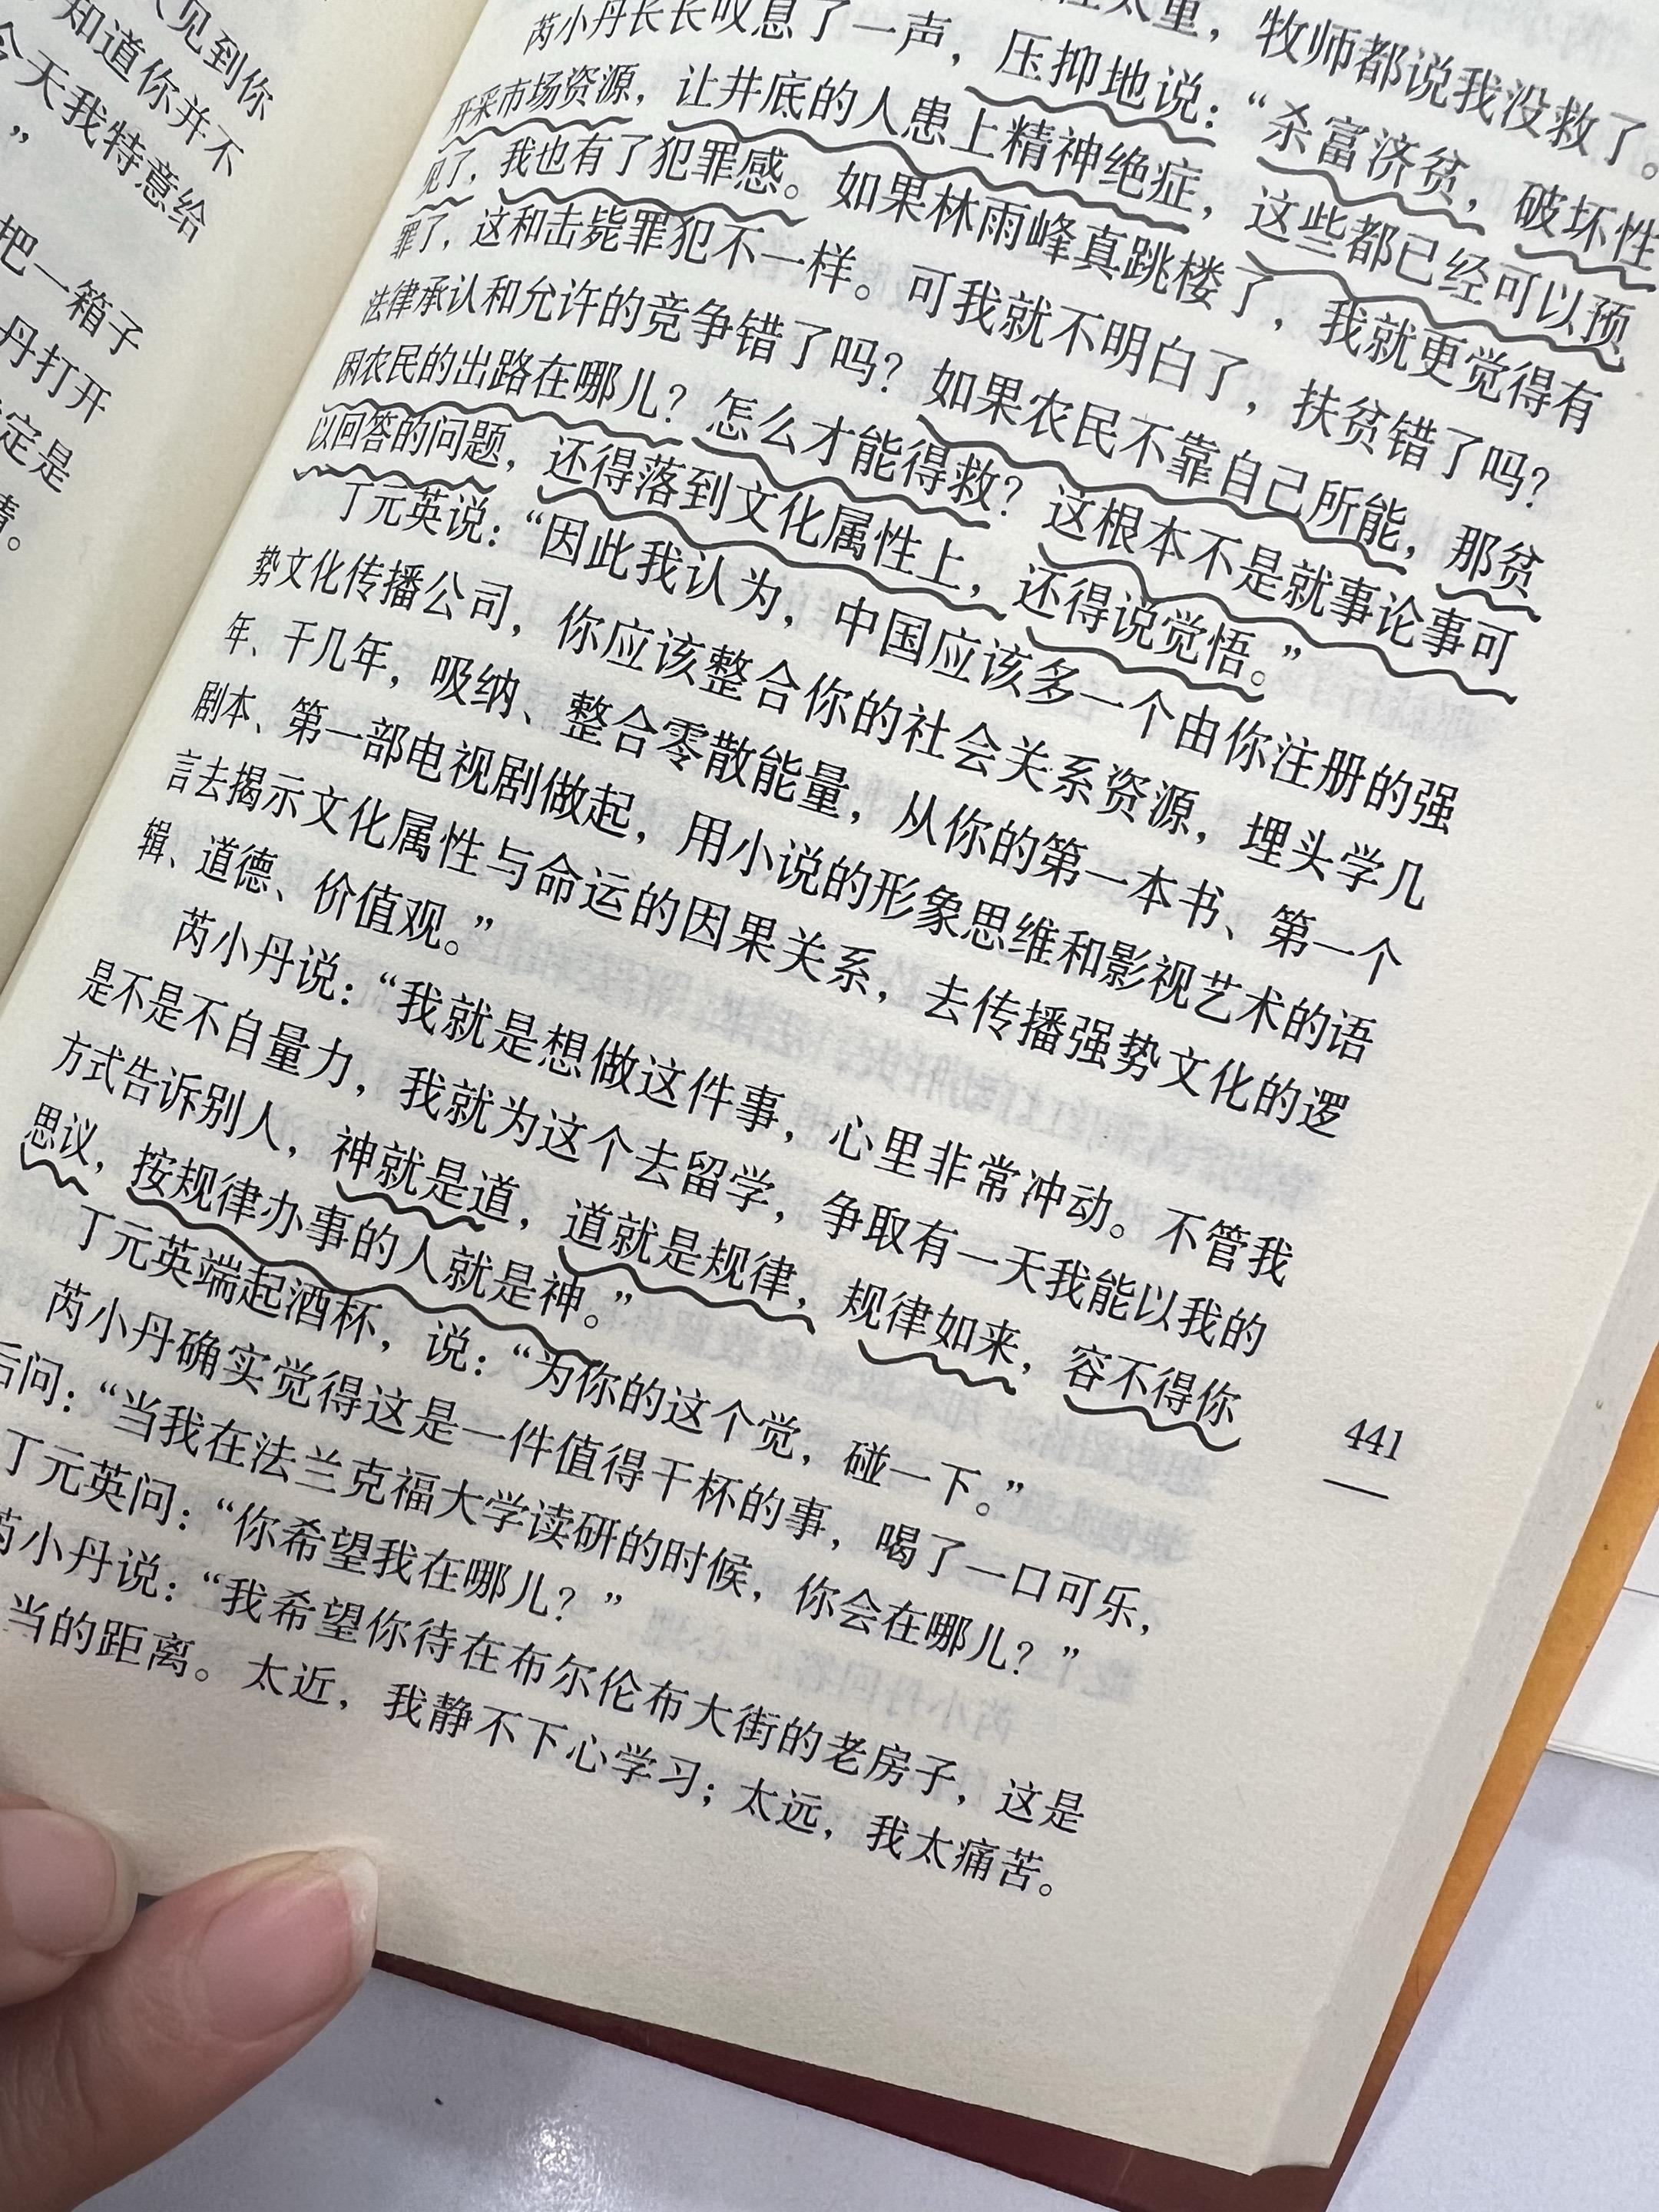 人见到你
知道你并不
今天我特意给
”
把一箱子
丹打开
定是
情。
太重，牧师都说我没救了。
芮小丹长长叹息了一声，压抑地说：“杀富济贫，破坏性
开采市场资源，让井底的人患上精神绝症，这些都已经可以预
见了，我也有了犯罪感。如果林雨峰真跳楼了，我就更觉得有
罪了，这和击毙罪犯不一样。可我就不明白了，扶贫错了吗？
法律承认和允许的竞争错了吗？如果农民不靠自己所能，那贫
困农民的出路在哪儿？怎么才能得救？这根本不是就事论事可
以回答的问题，还得落到文化属性上，还得说觉悟。”
丁元英说：“因此我认为，中国应该多一个由你注册的强
势文化传播公司，你应该整合你的社会关系资源，埋头学几
年、干几年，吸纳、整合零散能量，从你的第一本书、第一个
剧本、第一部电视剧做起，用小说的形象思维和影视艺术的语
言去揭示文化属性与命运的因果关系，去传播强势文化的逻
辑、道德、价值观。”
芮小丹说：“我就是想做这件事，心里非常冲动。不管我
是不是不自量力，我就为这个去留学，争取有一天我能以我的
方式告诉别人，神就是道，道就是规律，规律如来，容不得你
思议，按规律办事的人就是神。”
丁元英端起酒杯，说：“为你的这个觉，碰一下。”
芮小丹确实觉得这是一件值得干杯的事，喝了一口可乐，
后问：“当我在法兰克福大学读研的时候，你会在哪儿？”
丁元英问：“你希望我在哪儿？”
芮小丹说：“我希望你待在布尔伦布大街的老房子，这是
当的距离。太近，我静不下心学习；太远，我太痛苦。
441